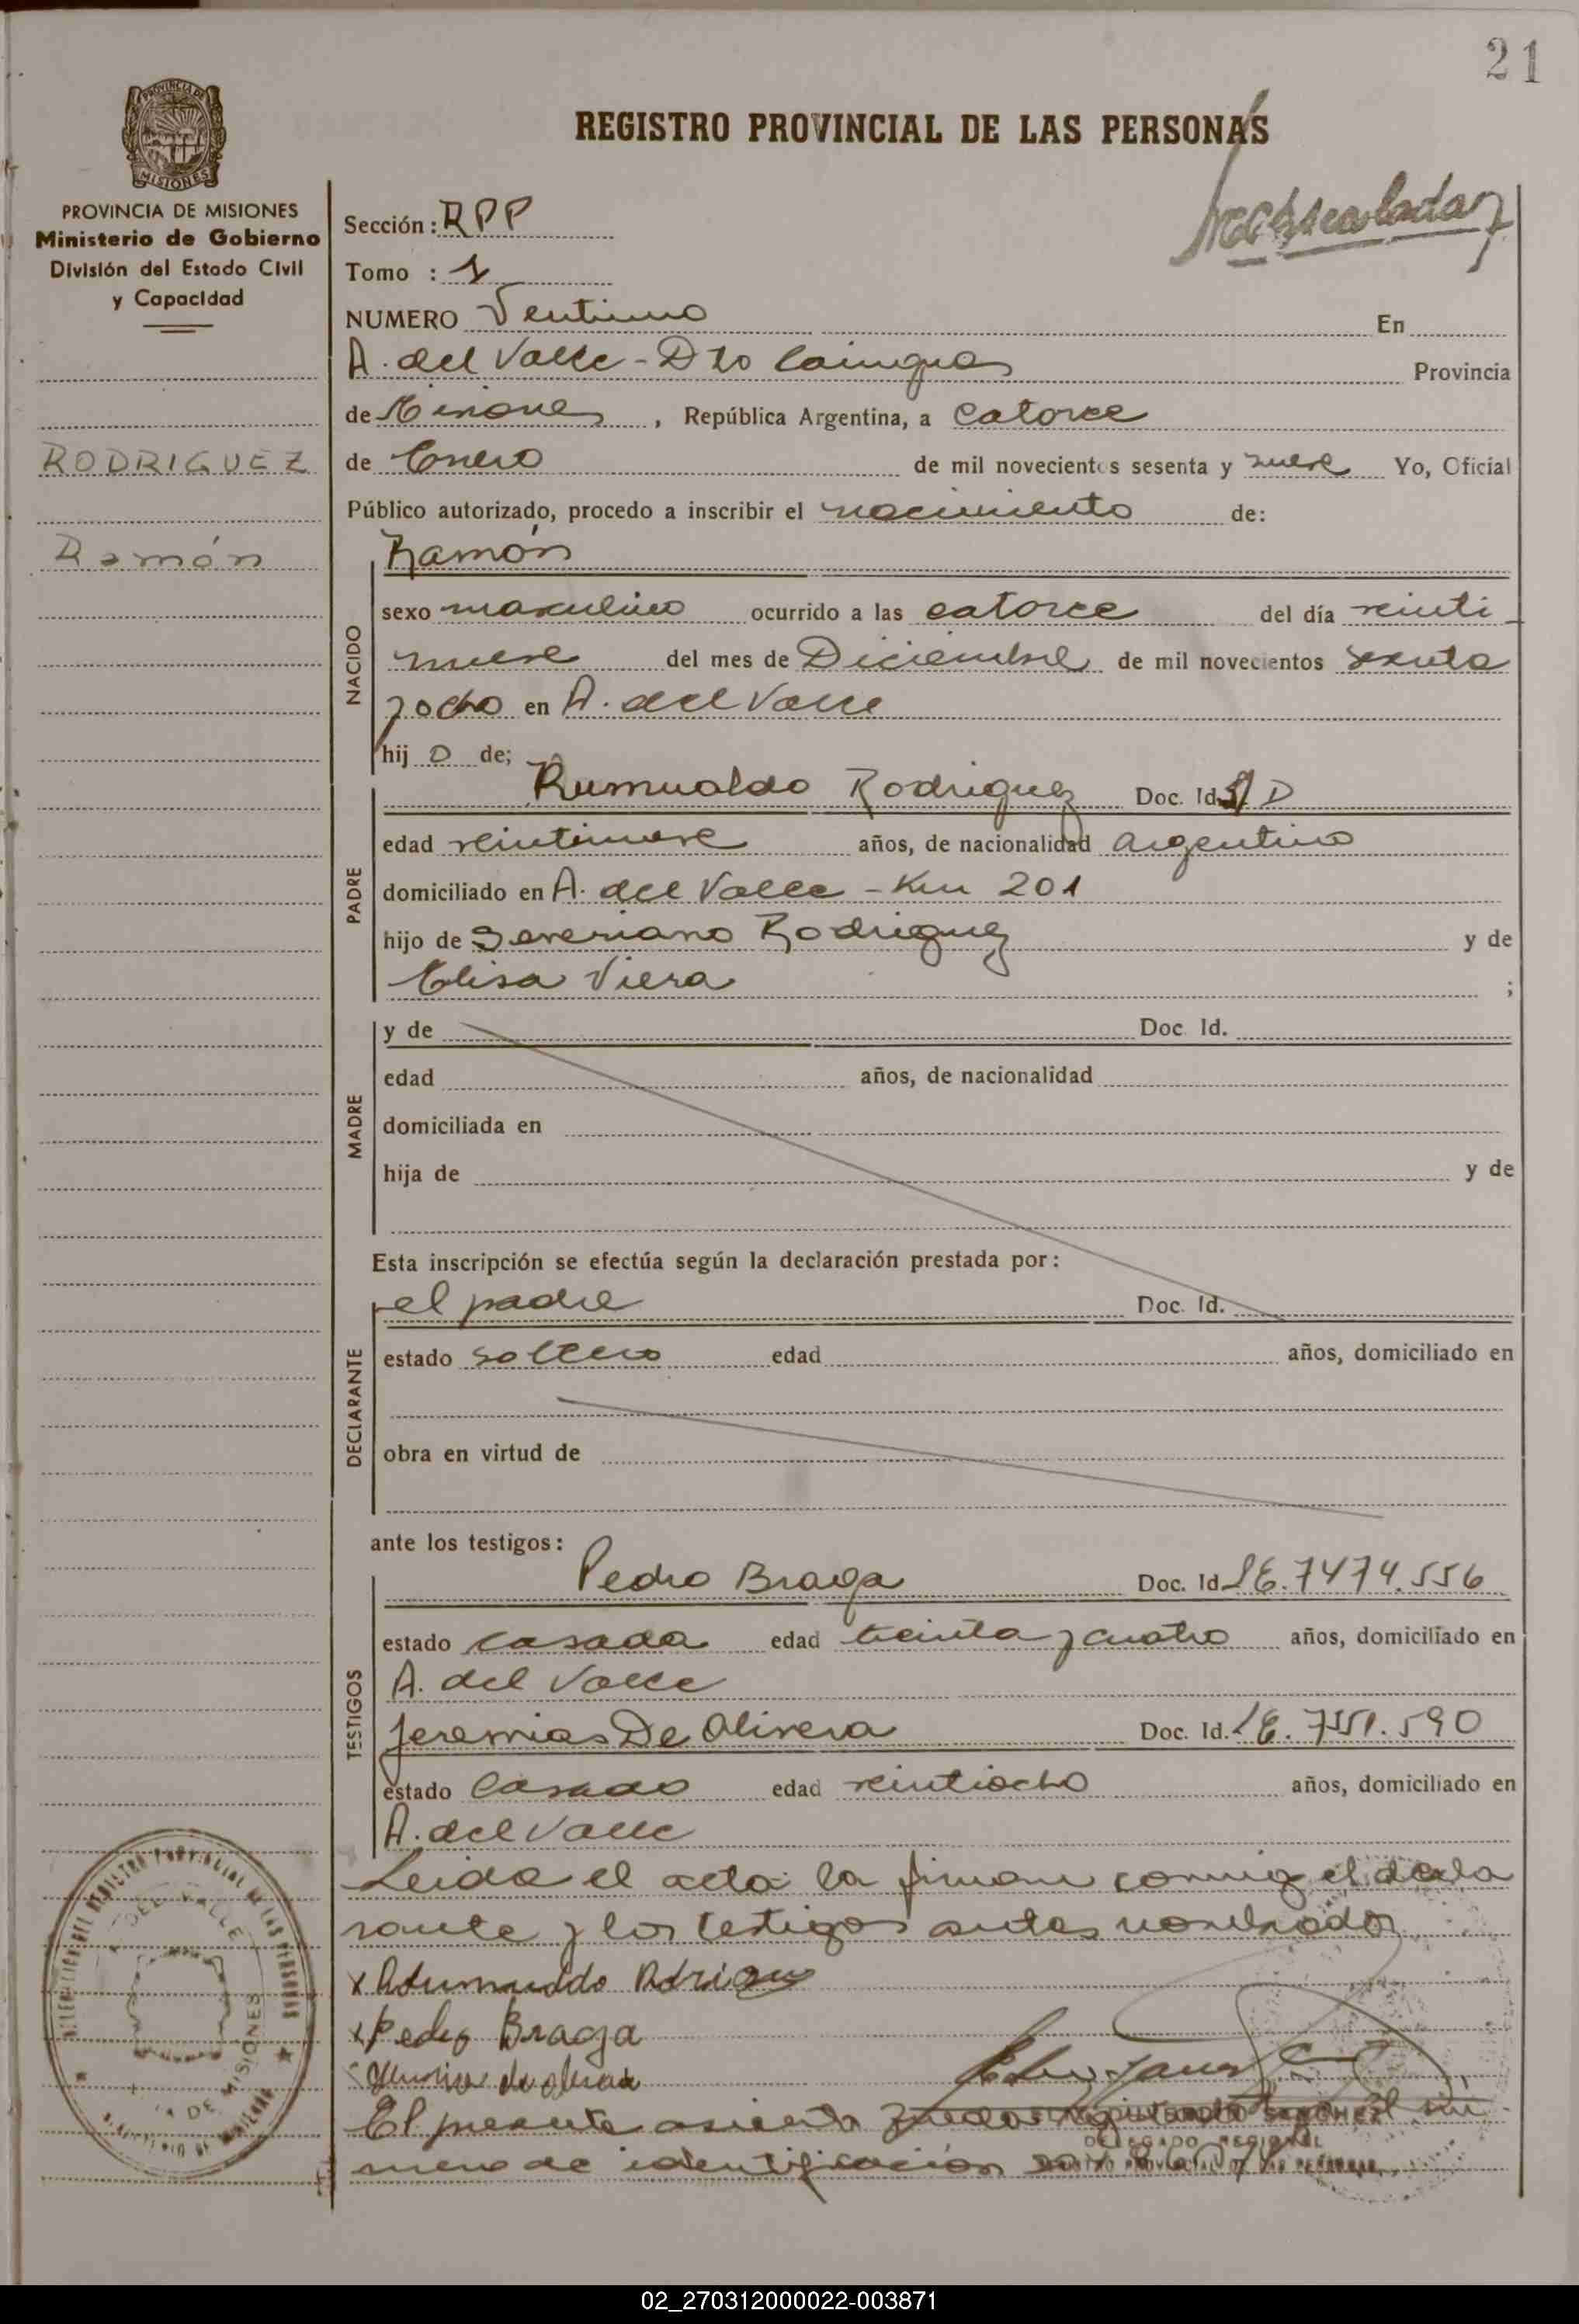 21
PROVINCIA DE
MISIONES
REGISTRO PROVINCIAL DE LAS PERSONAS
PROVINCIA DE MISIONES
Ministerio de Gobierno
División del Estado Civil
y Capacidad
Sección: RPP
Tomo : 1
NUMERO Ventiuno En
A. del Valle - Dto Cainguas Provincia
de Misiones, República Argentina, a Catorce
RODRIGUEZ
de Enero de mil novecientos sesenta y nueve Yo, Oficial
Público autorizado, procedo a inscribir el nacimiento de:
Ramón
NACIDO
Ramón
sexo masculino ocurrido a las catorce del día veinti
nueve del mes de Diciembre de mil novecientos sesenta
y ocho en A. del Valle
hij o de;
PADRE
Rumualdo Rodriguez Doc. Id. S/D
edad veintinueve años, de nacionalidad argentino
domiciliado en A. del Valle - Km 201
hijo de Severiano Rodriguez y de
Elisa Viera ;
MADRE
y de Doc. Id.
edad años, de nacionalidad
domiciliada en
hija de y de
Esta inscripción se efectúa según la declaración prestada por:
DECLARANTE
el padre Doc. Id.
estado soltero edad años, domiciliado en
obra en virtud de
ante los testigos:
TESTIGOS
Pedro Braga Doc. Id LE.7474.556
estado casada edad treinta y cuatro años, domiciliado en
A. del Valle
Jeremias De Olivera Doc. Id. LE. 7551.590
estado Casado edad veintiocho años, domiciliado en
A. del Valle
Leida el acta la firman conmigo el decla
rante y los testigos antes nombrados
x Rdumuddo Rdrigu
x Pedro Braga
El presente asiento
mero de identificación
DELEGADO REGIONAL
DEL VALLE
DE MISIONES
02_270312000022-003871